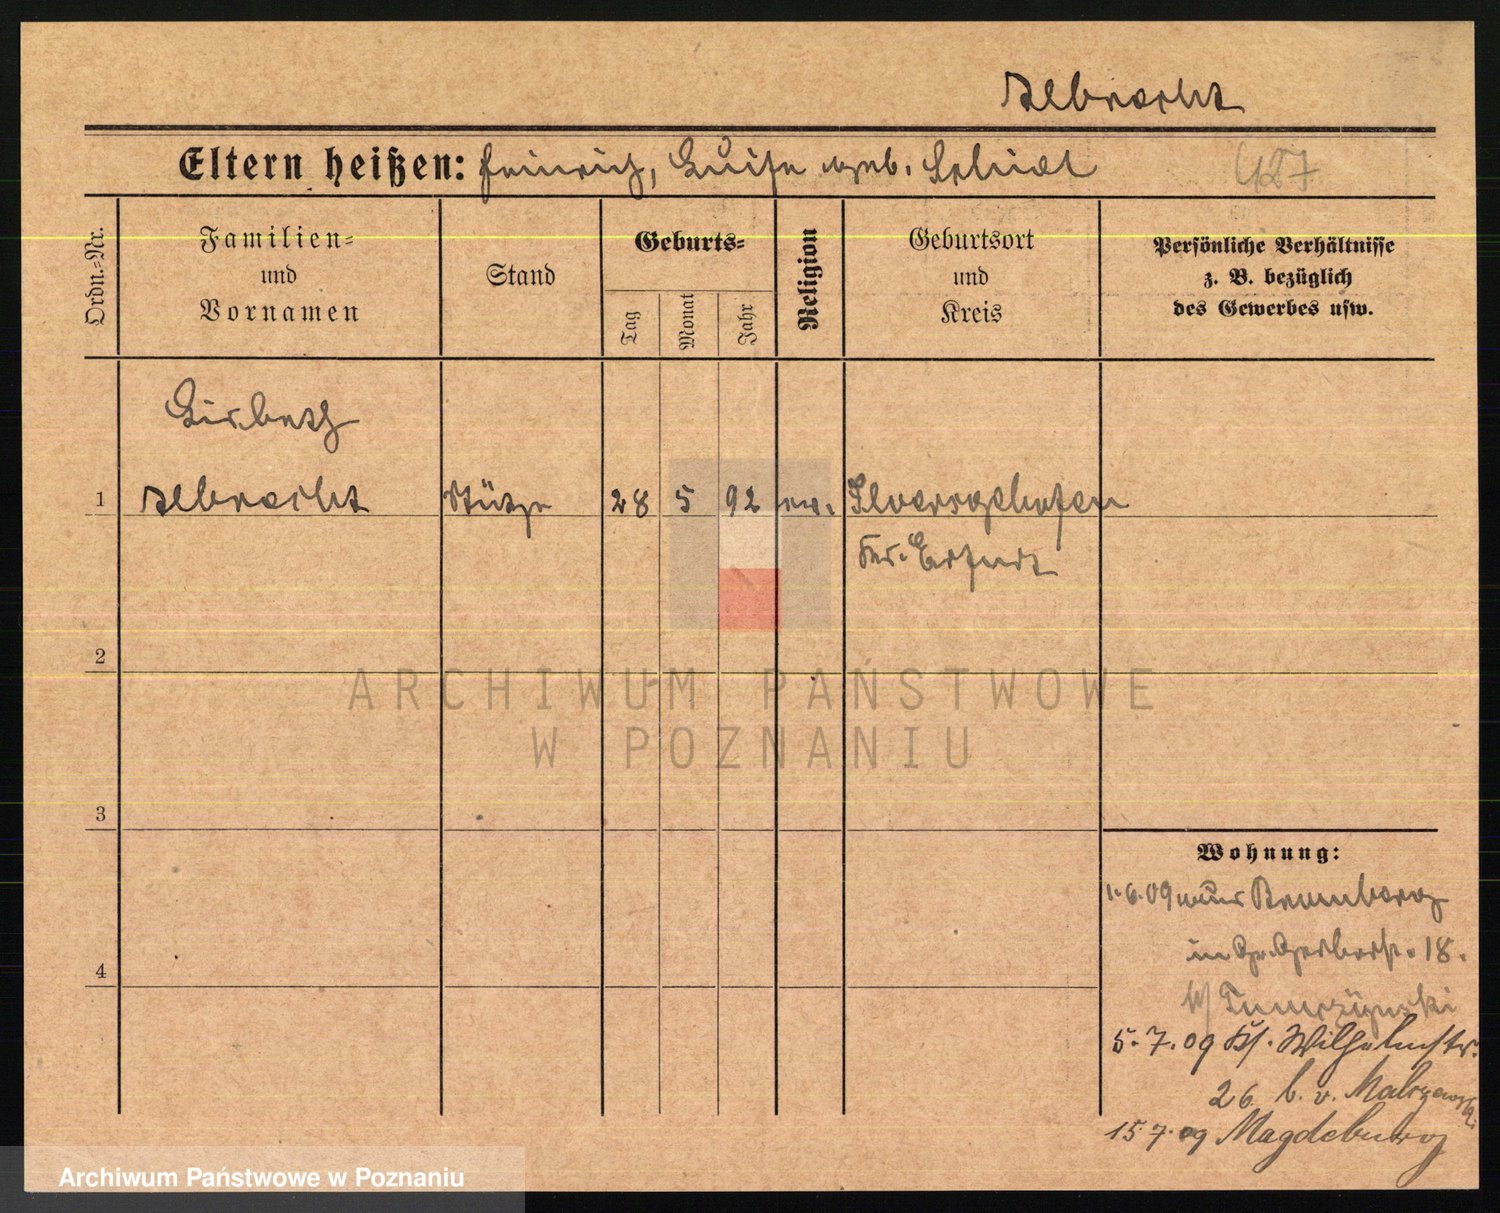 Albrecht
Eltern heißen: Heinrich, Luise geb. Schidt
Ordn.-Nr.
Familien-
und
Vornamen
Stand
Geburts-
Tag
Monat
Jahr
Religion
Geburtsort
und
Kreis
Persönliche Verhältnisse
z. B. bezüglich
des Gewerbes usw.
Lisbeth
1 Albrecht Stütze 28 5 92 ev. Ilversgehofen
Krs. Erfurt
2
3
4
Wohnung:
1.6.09 aus Bromberg
in Gr. Gerberstr. 18.
b/
5.7.09 Ks. Wilhelmstr.
26 b. v. Malczewski
15.7.09 Magdeburg
ARCHIWUM PAŃSTWOWE
W POZNANIU
Archiwum Państwowe w Poznaniu